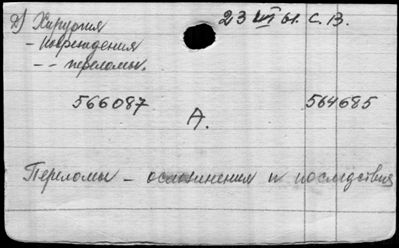 2) Хирургия 23 VI 61. С. В.
- Повреждения
- - переломы.
566087 564685
А.
Переломы - осложнения и последствия